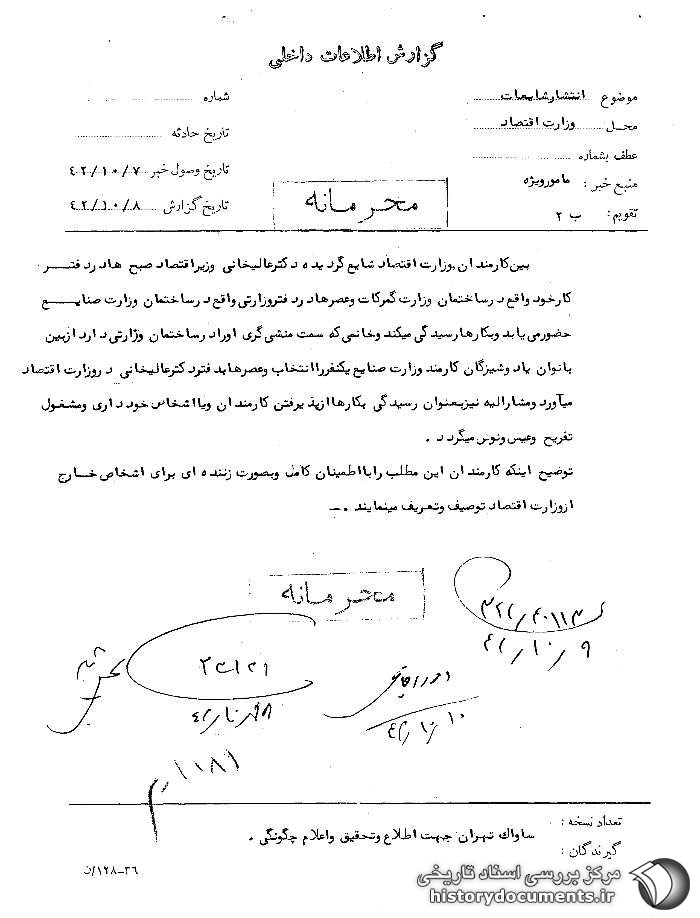 گزارش اطلاعات داخلی
موضوع انتشار شایعات
محل وزارت اقتصاد
عطف بشماره
منبع خبر : مامور ویژه
تقویم : ب ۲
شماره
تاریخ حادثه
تاریخ وصول خبر ۴۲/۱۰/۷
تاریخ گزارش ۴۲/۱۰/۸
محرمانه
بین کارمندان وزارت اقتصاد شایع گردیده دکتر عالیخانی وزیر اقتصاد صبح ها در دفتر
کار خود واقع در ساختمان وزارت گمرکات و عصرها در دفتر وزارتی واقع در ساختمان وزارت صنایع
حضور می یابد و بکارها رسیدگی میکند و خانمی که سمت منشی گری او را در ساختمان وزارتی دارد از بین
بانوان یا دوشیزگان کارمند وزارت صنایع یکنفر را انتخاب و عصرها بدفتر دکتر عالیخانی در وزارت اقتصاد
میآورد و مشارالیه نیز بعنوان رسیدگی بکارها از پذیرفتن کارمندان و یا اشخاص خودداری و مشغول
تفریح و عیس ونوس میگردد .
توضیح اینکه کارمندان این مطلب را با اطمینان کامل و بصورت زننده ای برای اشخاص خارج
از وزارت اقتصاد توصیف و تعریف مینمایند .ـ
محرمانه
۴۲/۱۰/۹
۴۲/۱۰/۱۰
تعداد نسخه :
گیرندگان :
ساواك تهران جهت اطلاع و تحقیق و اعلام چگونگی .
۳۶-۱۲۸/ن
مرکز بررسی اسناد تاریخی
historydocuments.ir